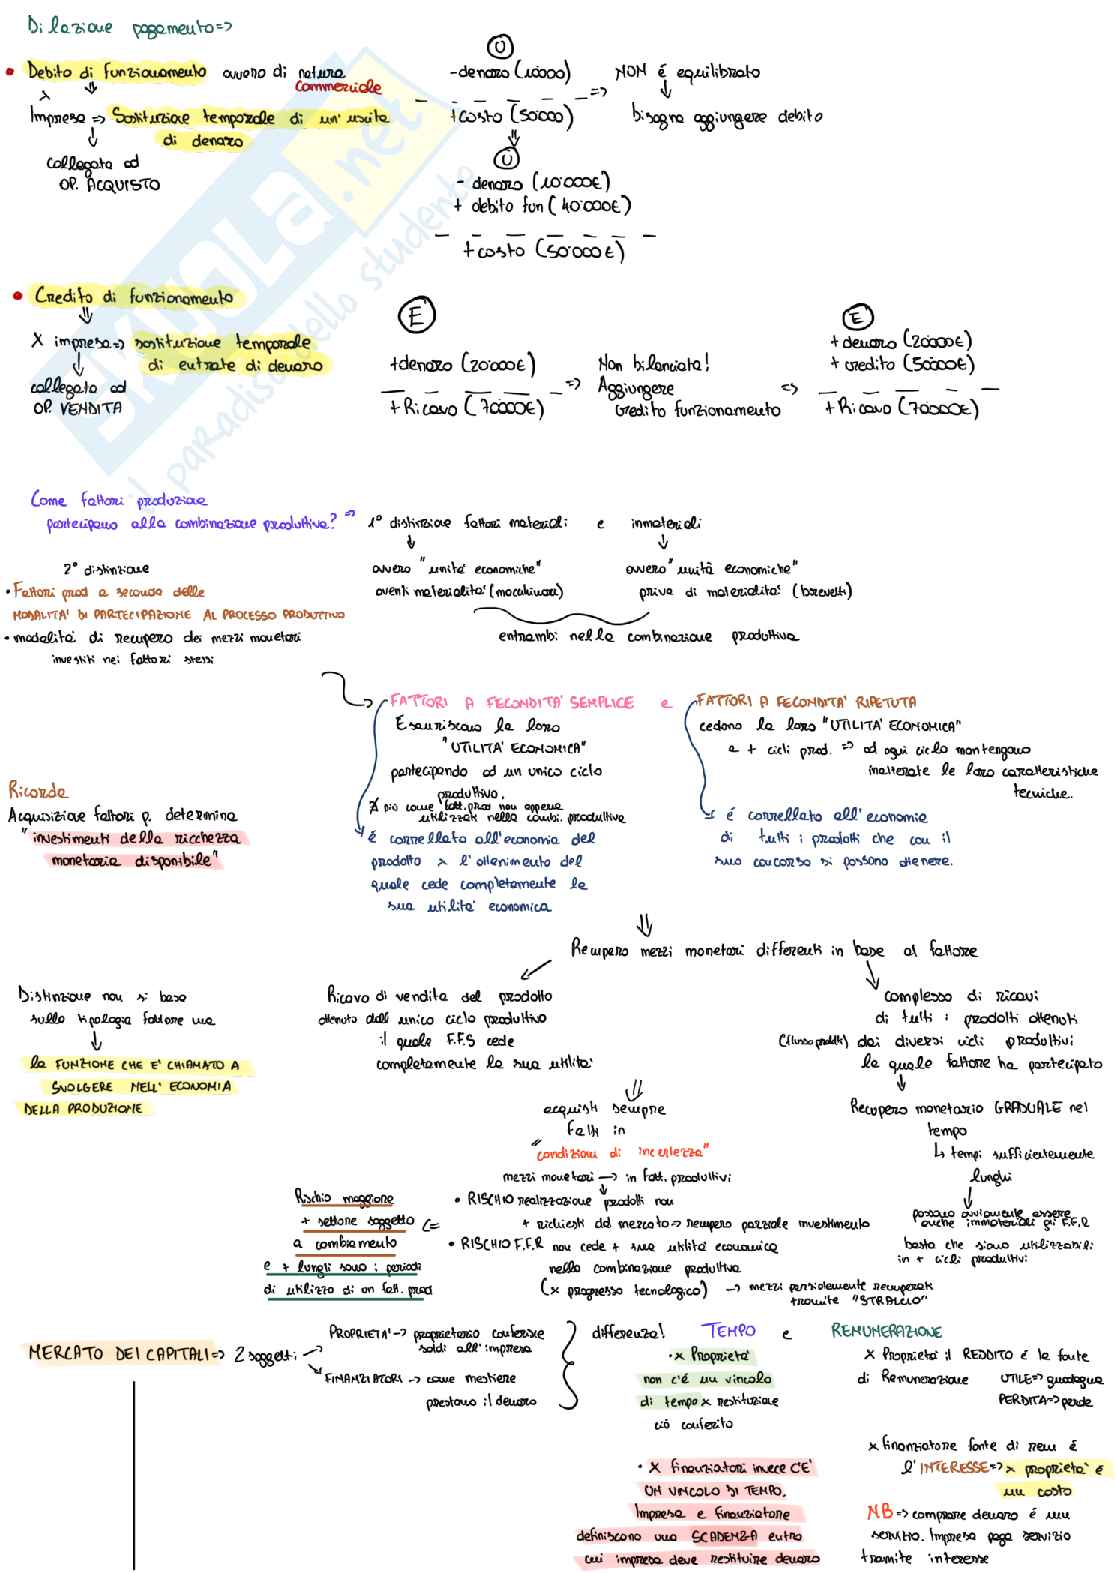 Dilazione pagamento =>
• Debito di funzionamento ovvero di natura
commerciale
x
Impresa => Sostituzione temporale di un'uscita
di denaro
collegata ad
OP. ACQUISTO
U
- denaro (10000)
+ costo (50000)
=> NON é equilibrato
bisogna aggiungere debito
U
- denaro (10.000€)
+ debito fun (40.000€)
+ costo (50.000€)
• Credito di funzionamento
X impresa => sostituzione temporale
di entrate di denaro
collegato ad
OP. VENDITA
E
+ denaro (20.000€)
+ Ricavo (70000€)
=> Non bilanciata!
Aggiungere
credito funzionamento
=>
E
+ denaro (20000€)
+ credito (50000€)
+ Ricavo (70000€)
SKUOLA.net
il paradiso dello studente
Come fattori produzione
partecipano alla combinazione produttiva? =>
1° distinzione fattori materiali e immateriali
ovvero "unità economiche"
aventi materialità (macchinari)
ovvero "unità economiche"
priva di materialità (brevetti)
entrambi nella combinazione produttiva
2° distinzione
• Fattori prod a seconda delle
MODALITA' DI PARTECIPAZIONE AL PROCESSO PRODUTTIVO
• modalità di recupero dei mezzi monetari
investiti nei fattori stessi
FATTORI A FECONDITA' SEMPLICE e
Esauriscono la loro
"UTILITA' ECONOMICA"
partecipando ad un unico ciclo
produttivo.
come fatt. prod non appena
utilizzati nella combi. produttiva
é correlato all'economia del
prodotto x l'ottenimento del
quale cede completamente la
sua utilità economica
FATTORI A FECONDITA' RIPETUTA
cedono la loro "UTILITA' ECONOMICA"
a + cicli prod. => ad ogni ciclo mantengono
inalterate le loro caratteristiche
tecniche.
é correllato all'economie
di tutti i prodotti che con il
suo concorso si possono ottenere.
Ricorda
Acquisizione fattori p. determina
"investimenti della ricchezza
monetaria disponibile"
Recupero mezzi monetari differenti in base al fattore
Distinzione non si basa
sulla tipologia fattore ma
la FUNZIONE CHE E' CHIAMATO A
SVOLGERE NELL'ECONOMIA
DELLA PRODUZIONE
Ricavo di vendita del prodotto
ottenuto dall'unico ciclo produttivo
il quale F.F.S cede
completamente la sua utilità
complesso di ricavi
di tutti i prodotti ottenuti
(flusso prodotti) dai diversi cicli produttivi
la quale fattore ha partecipato
Recupero monetario GRADUALE nel
tempo
↳ tempi sufficientemente
lunghi
possono ovviamente essere
anche immateriali gli F.F.R
basta che siano utilizzabili
in + cicli produttivi
acquisti sempre
fatti in
"condizioni di incertezza"
mezzi monetari → in fatt. produttivi
• RISCHIO realizzazione prodotti non
+ richiesti dal mercato => recupero parziale investimento
• RISCHIO F.F.R non cede + sua utilità economica
nella combinazione produttiva
(x progresso tecnologico) → mezzi parzialmente recuperati
tramite "STRALCIO"
Rischio maggiore
+ settore soggetto <=
a cambiamento
e + lunghi sono i periodi
di utilizzo di un fatt. prod
MERCATO DEI CAPITALI => 2 soggetti
PROPRIETA' → proprietario conferisce
soldi all'impresa
FINANZIATORI → come mestiere
prestano il denaro
differenza! TEMPO e REMUNERAZIONE
• x Proprietà
non c'é un vincolo
di tempo x restituzione
ciò conferito
• X finanziatori invece C'E'
UN VINCOLO DI TEMPO.
Impresa e finanziatore
definiscono una SCADENZA entro
cui impresa deve restituire denaro
x Proprietà il REDDITO é la fonte
di Remunerazione UTILE => guadagna
PERDITA => perde
x finanziatore fonte di rem é
l'INTERESSE => x proprietà é
un costo
NB => comprare denaro é un
servizio. Impresa paga servizio
tramite interesse